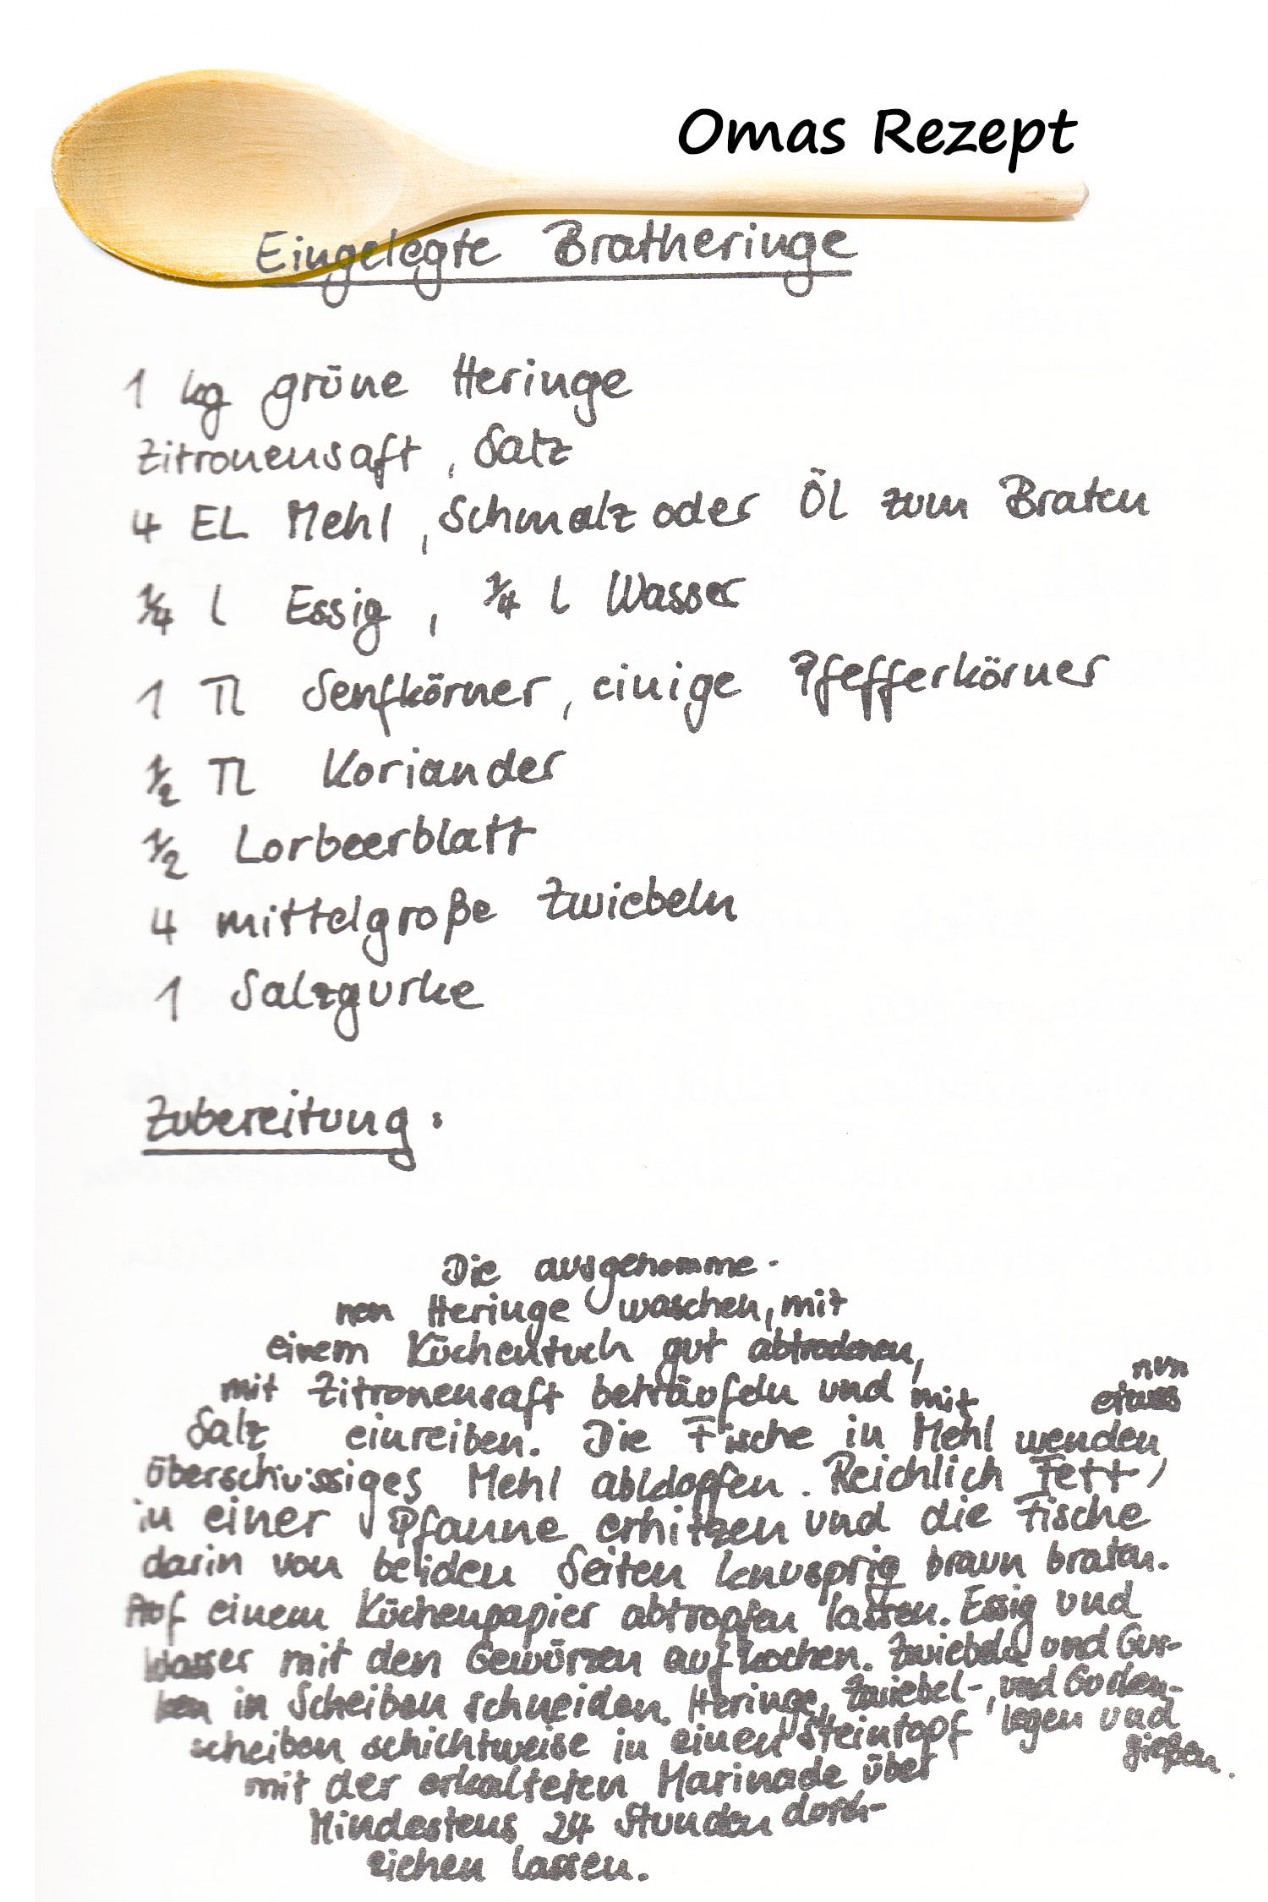 Omas Rezept
Eingelegte Bratheringe
1 kg grüne Heringe
Zitronensaft, Salz
4 EL Mehl, Schmalz oder Öl zum Braten
¼ l Essig, ¼ l Wasser
1 TL Senfkörner, einige Pfefferkörner
½ TL Koriander
½ Lorbeerblatt
4 mittelgroße Zwiebeln
1 Salzgurke
Zubereitung:
Die ausgenomme-
nen Heringe waschen, mit
einem Küchentuch gut abtrocknen,
mit Zitronensaft beträufeln und mit nun
Salz einreiben. Die Fische in Mehl wenden,
überschüssiges Mehl abklopfen. Reichlich Fett
in einer Pfanne erhitzen und die Fische
darin von beiden Seiten knusprig braun braten.
Auf einem Küchenpapier abtropfen lassen. Essig und
Wasser mit den Gewürzen aufkochen. Zwiebeln und Gur-
ken in Scheiben schneiden. Heringe, Zwiebel-, und Gurken-
scheiben schichtweise in einen Steintopf legen und
mit der erkalteten Marinade über gießen.
Mindestens 24 Stunden durch-
ziehen lassen.